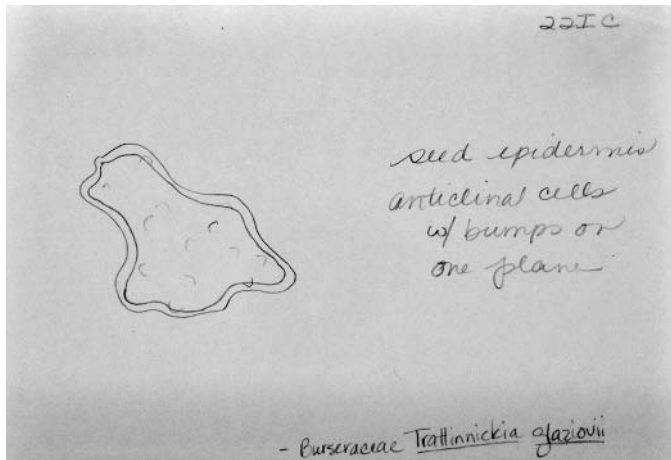 22I C
seed epidermis
anticlinal cells
w/ bumps on
one plane
- Burseraceae Trattinnickia glaziovii